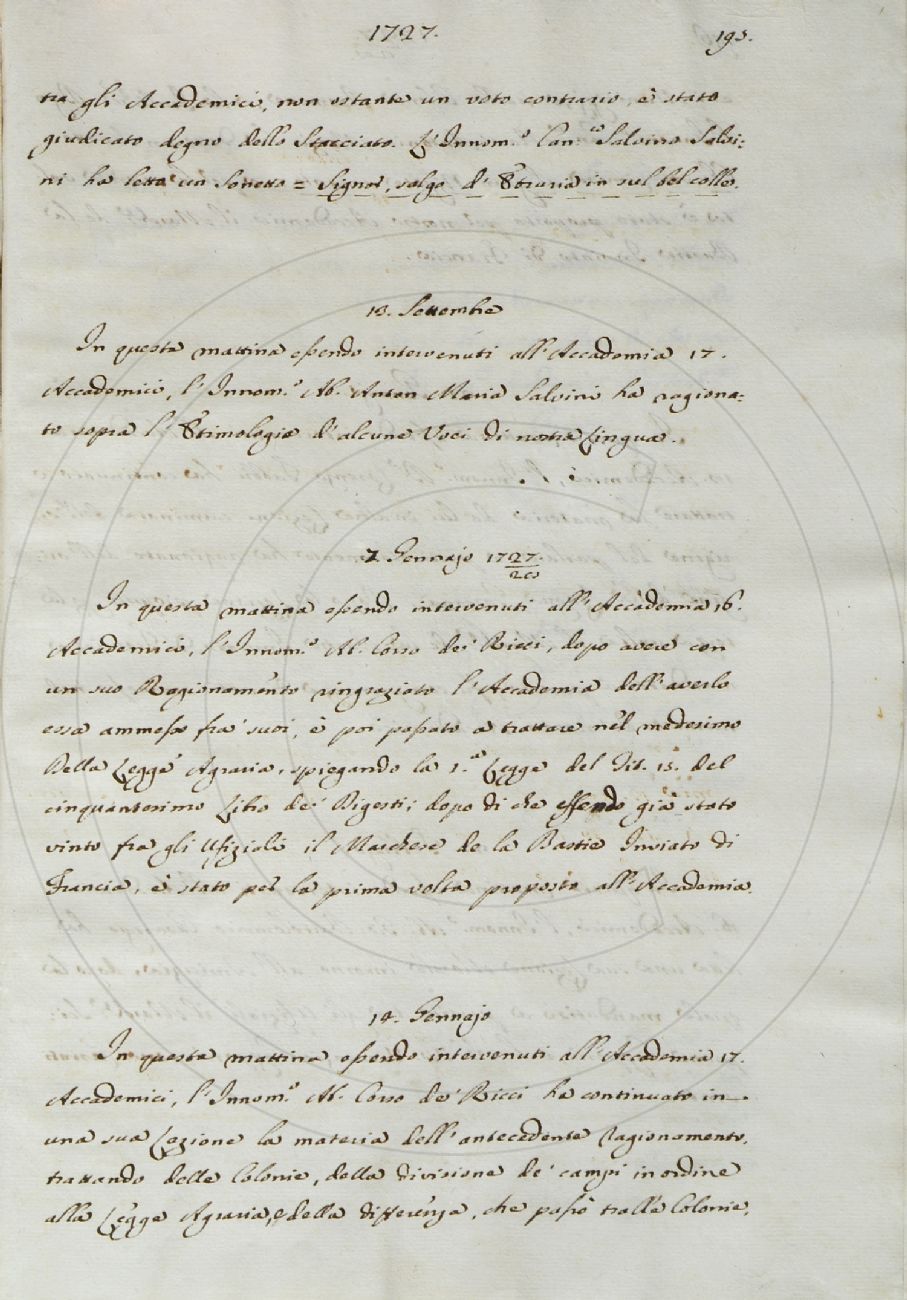 1727. 195.
tra gli Accademici, non ostante un voto contrario, è stato
giudicato degno dello Stacciato. L'Innom.o Can.co Salvino Salvi=
ni ha letto un Sonetto = Signor, salgo d'Etruria in sul bel colle.
13. Settembre
In questa mattina essendo intervenuti all'Accademia 17.
Accademici, l'Innom.o Ab. Anton Maria Salvini ha ragiona=
to sopra l'Etimologia d'alcune Voci di nostra Lingua.
7. Gennajo 1727/28
In questa mattina essendo intervenuti all'Accademia 16.
Accademici, l'Innom.o Ab. Corso de' Ricci, dopo avere con
un suo Ragionamento ringraziato l'Accademia dell'averlo
essa ammesso fra' suoi, è poi passato a trattare nel medesimo
Della Legge Agraria, spiegando la 1.a Legge del Tit. 15. del
cinquantesimo Libro dei Digesti; dopo di che essendo già stato
vinto fra gli Ufiziali il Marchese de la Bastie Inviato di
Francia, è stato per la prima volta proposto all'Accademia.
14. Gennajo
In questa mattina essendo intervenuti all'Accademia 17.
Accademici, l'Innom.o Ab. Corso de' Ricci ha continuato in
una sua Lezione la materia dell'antecedente Ragionamento,
trattando delle Colonie, della divisione de' campi in ordine
alla Legge Agraria, e della differenza, che passò tralle Colonie,